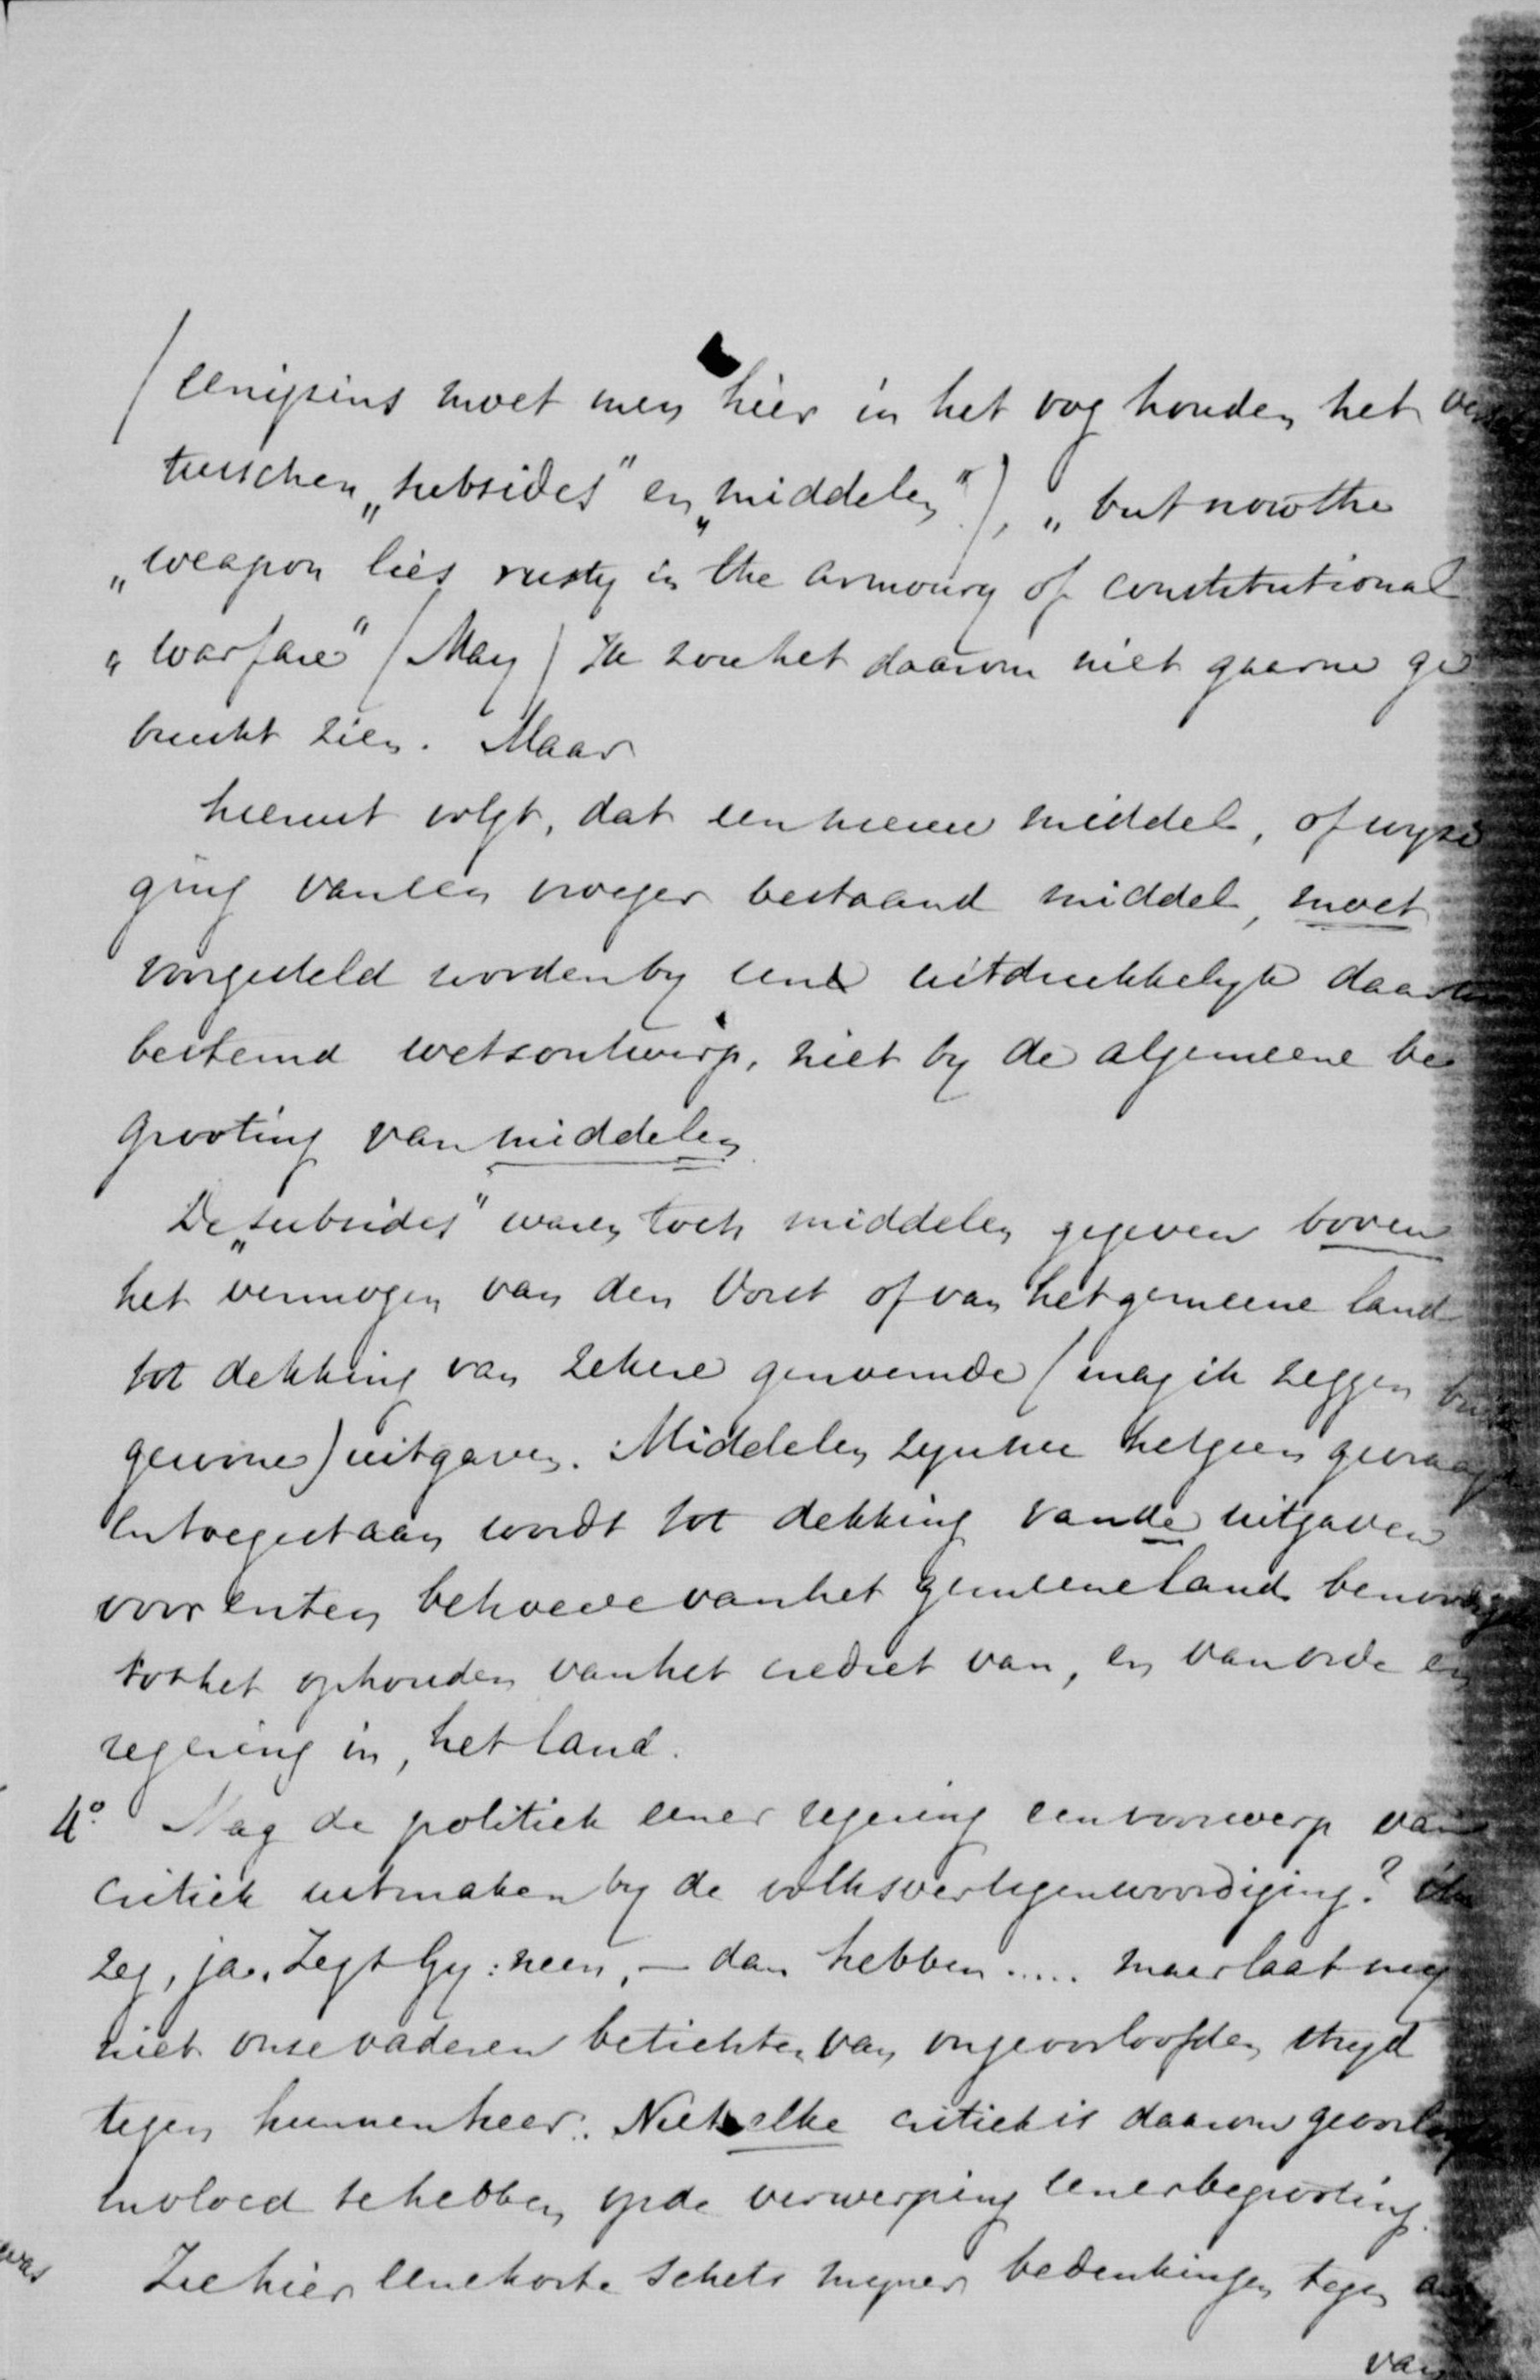 (eenigsins moet men hier in het oog houden het
tusschen „subsides” en „middelen”), „but now the
„weapon lies rusty in the armoury of constitutional
„warfare” (May) Ik zou het daarom niet gaarne ge
bruikt zien. Maar
hieruit volgt, dat een nieuw middel, of wyzi
ging van een vroeger bestaand middel, moet
voorgesteld worden by een uitdrukkelyk daartoe
bestemd wetsontwerp, niet by de algemeene be
grooting van middelen
De „subsides” waren toch middelen gegeven boven
het vermogen van den Vorst of van het gemeene land
tot dekking van zekere genoemde (mag ik zeggen buiten
gewone) uitgaven. Middelen zyn nu hetgeen gevraagd
en toegestaan wordt tot dekking van de uitgaven
voor en ten behoeve van het gemeene land benoodigd
tot het ophouden van het crediet van, en van orde en
regering in, het land.
4° Mag de politiek eener regering een voorwerp van
critiek uitmaken by de volksvertegenwoordiging? Ik
zeg, ja. Zegt Gy: neen, — dan hebben ..... maar laat my
niet onze vaderen betichten van ongeoorloofden stryd
tegen hunnen heer. Niet elke critiek is daarom geoorloofd
invloed te hebben op de verwerping eener begrooting.
Zie hier eene korte schets myner bedenkingen tegen
van
was